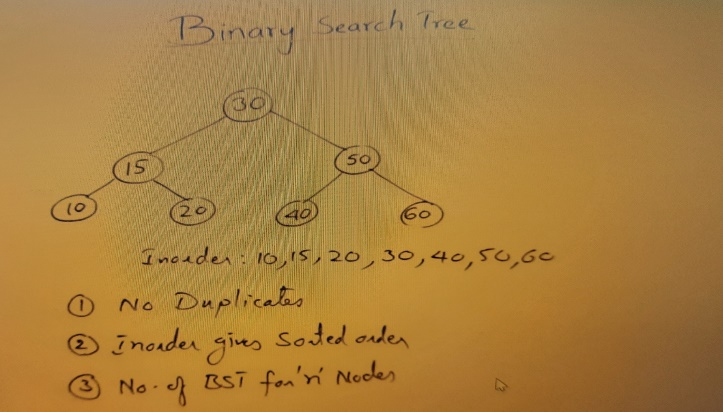 Binary Search Tree
30
15 50
10 20 40 60
Inorder : 10,15,20,30,40,50,60
① No Duplicates
② Inorder gives Sorted order
③ No. of BST for 'n' Nodes